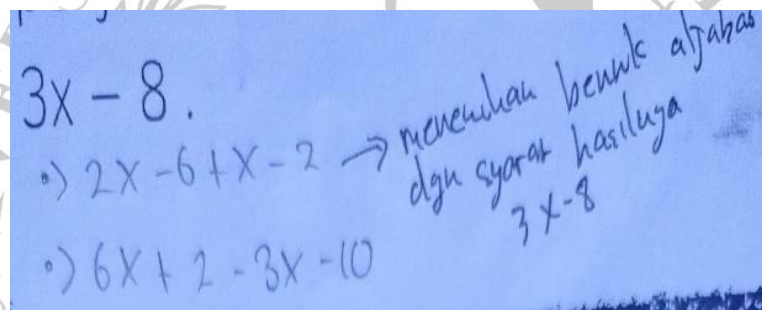 3x - 8.
•) 2x - 6 + x - 2 → menentukan bentuk aljabar
dgn syarat hasilnya
3x-8
•) 6x + 2 - 3x - 10